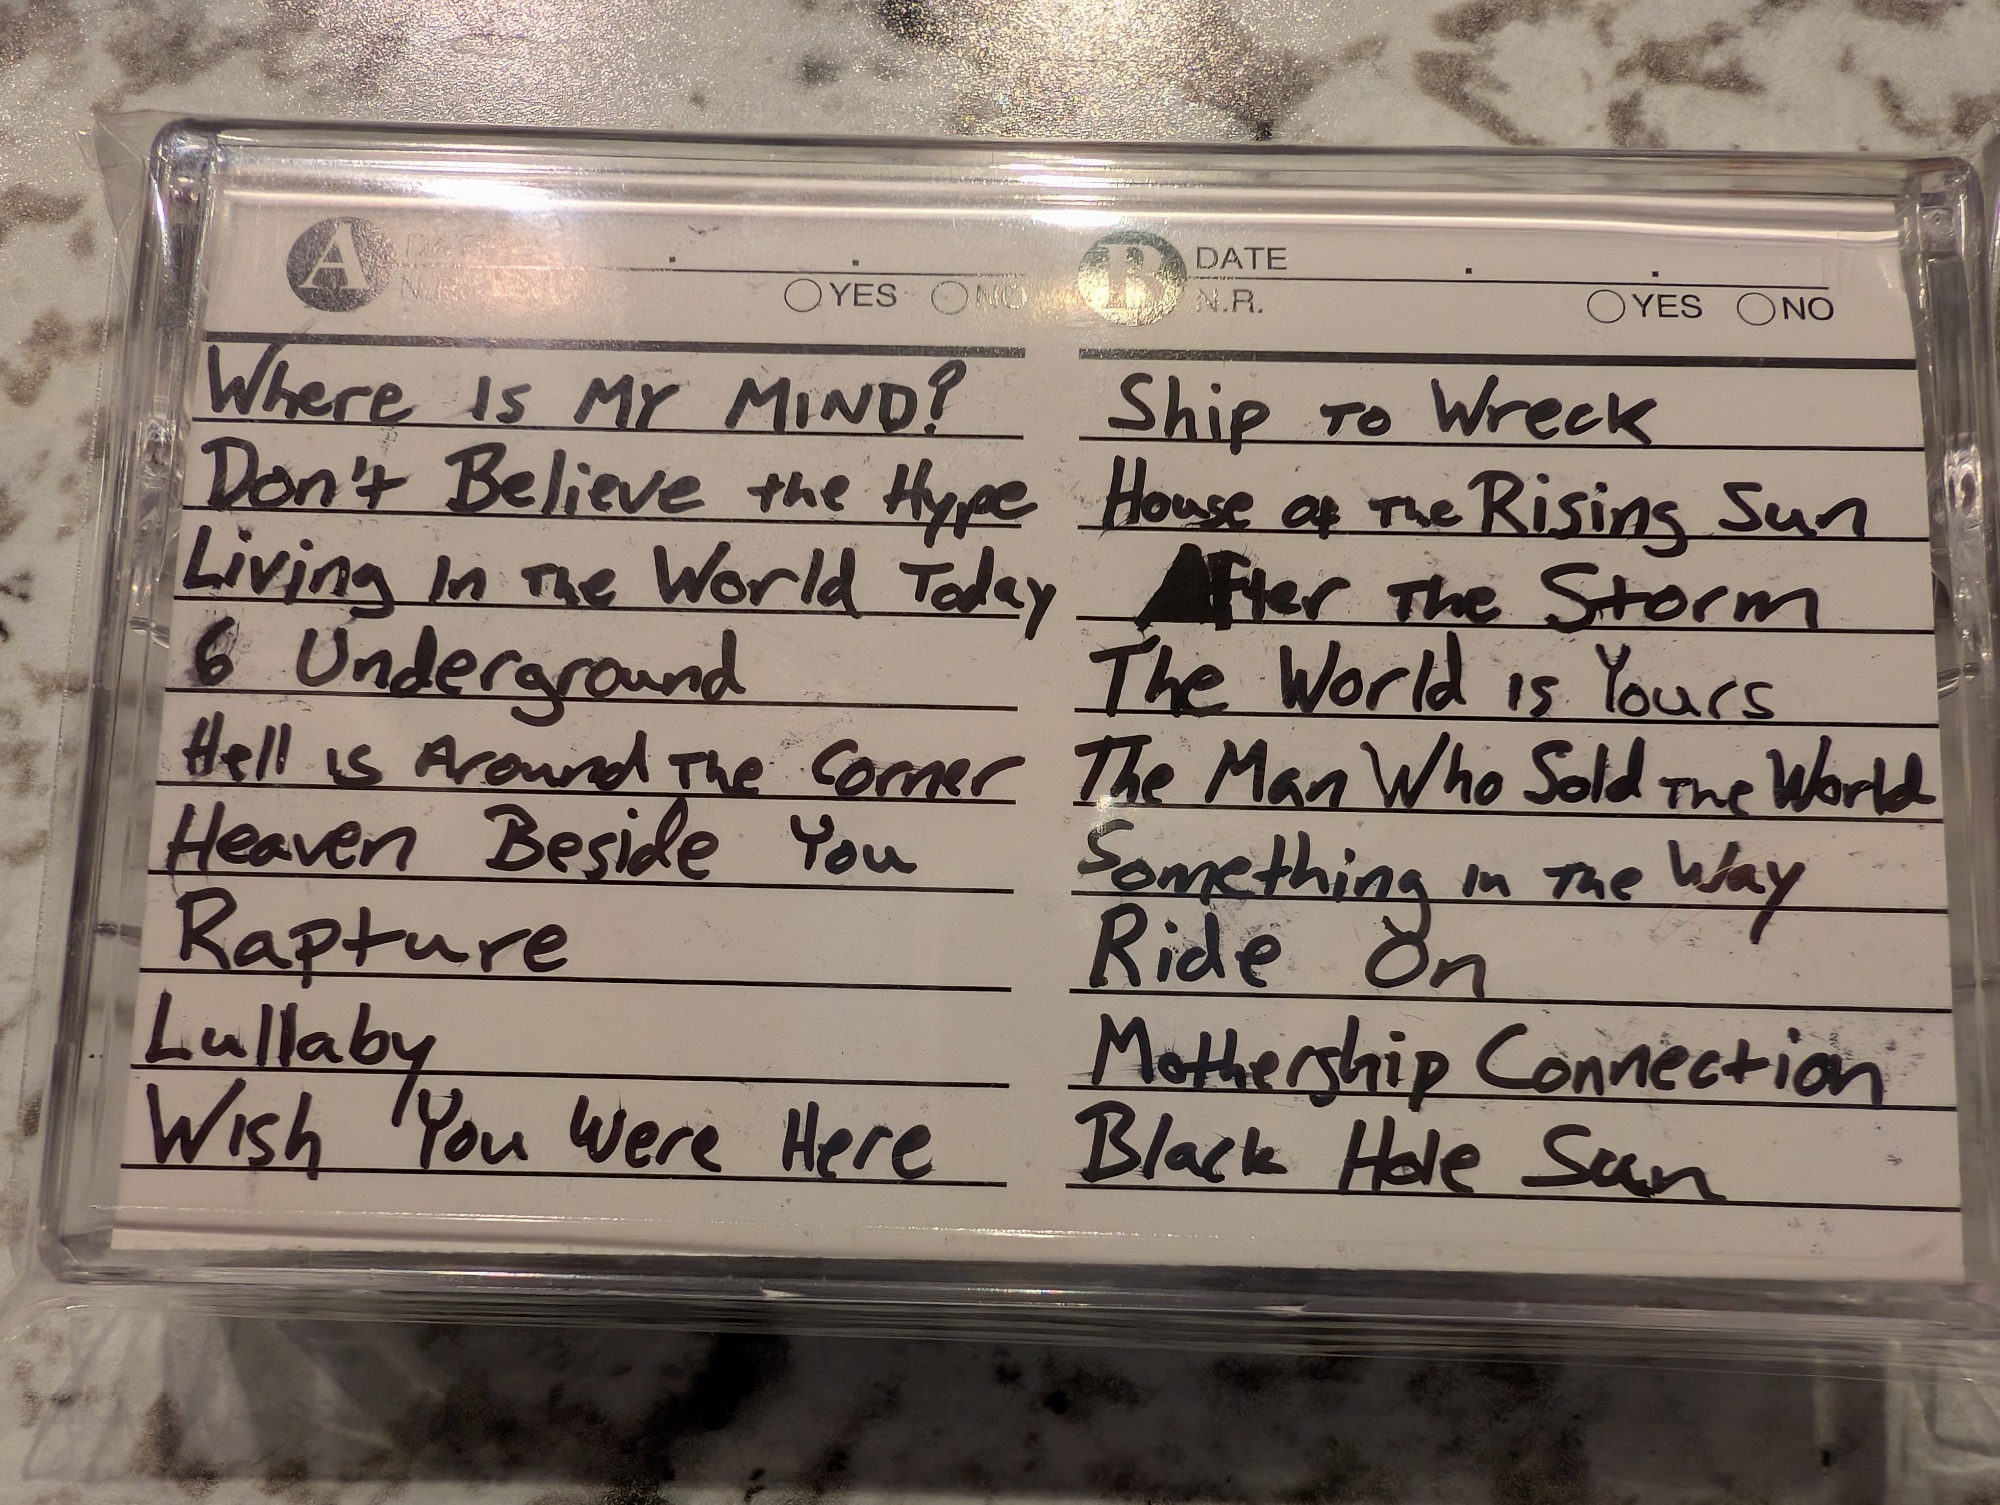 A
YES NO
Where Is My MIND?
Don't Believe the Hype
Living In The World Today
6 Underground
Hell is Around The Corner
Heaven Beside You
Rapture
Lullaby
Wish You Were Here
B DATE
N.R. YES NO
Ship To Wreck
House of The Rising Sun
After The Storm
The World is Yours
The Man Who Sold The World
Something in The Way
Ride On
Mothership Connection
Black Hole Sun